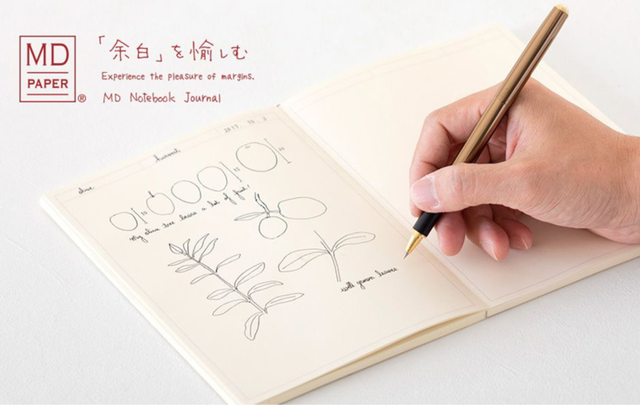 MD
PAPER
®
「余白」を愉しむ
Experience the pleasure of margins.
MD Notebook Journal
olive
My olive tree bears a lot of fruit!
with green leaves